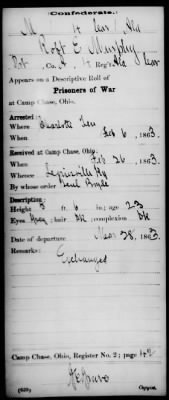 Confederate.
M 4 Cav. Ala
Robt E. Murphy
Pvt., Co. A, 4 Reg't Ala Cav
Appears on a Descriptive Roll of
Prisoners of War
at Camp Chase, Ohio.
Arrested:
Where Charlotte Ten
When Feb 6, 1863.
Received at Camp Chase, Ohio:
When Feb 26, 1863.
Whence Louisville Ky
By whose order Genl Boyle
Description:
Height 5 ft. 6 in.; age 23
Eyes Grey; hair Dk; complexion Dk
Date of departure Mar 28, 1863.
Remarks:
Exchanged
Camp Chase, Ohio, Register No. 2; page 142
(639) Copyist.